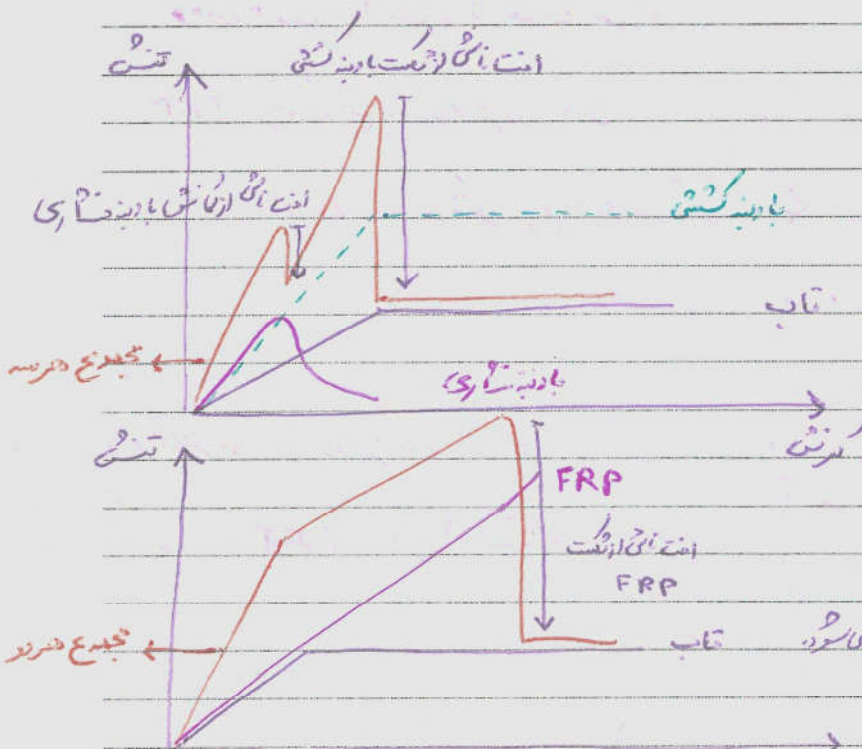 تنش
افت ناشی از شکست بادبند کششی
افت ناشی از کمانش بادبند فشاری
بادبند کششی
قاب
مجموع هر سه
بادبند فشاری
کرنش
تنش
FRP
افت ناشی از شکست
FRP
مجموع هر دو
قاب
می‌شود.